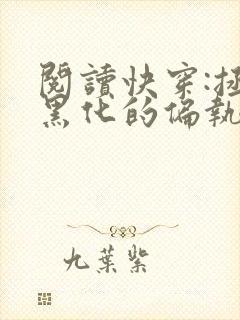 閱讀快穿:
黑化的偏執
九葉紫